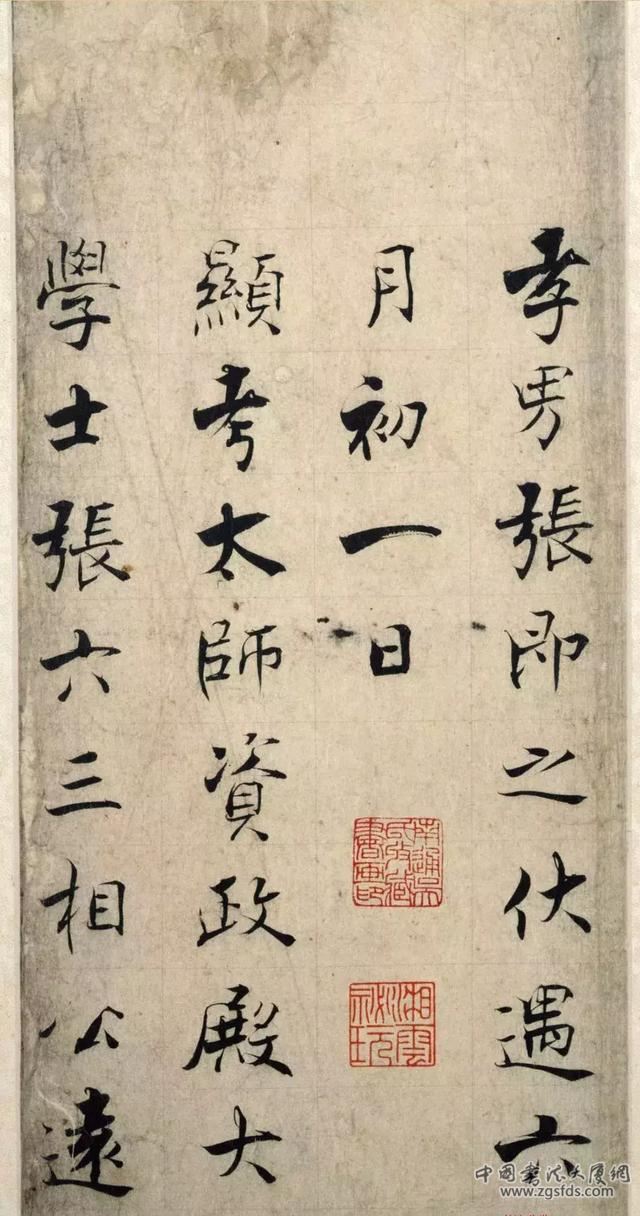 孝男張即之伏遇六
月初一日
顯考太師資政殿大
學士張六三相公遠
湘雲秘玩
中國書法大廈網
www.zgsfds.com